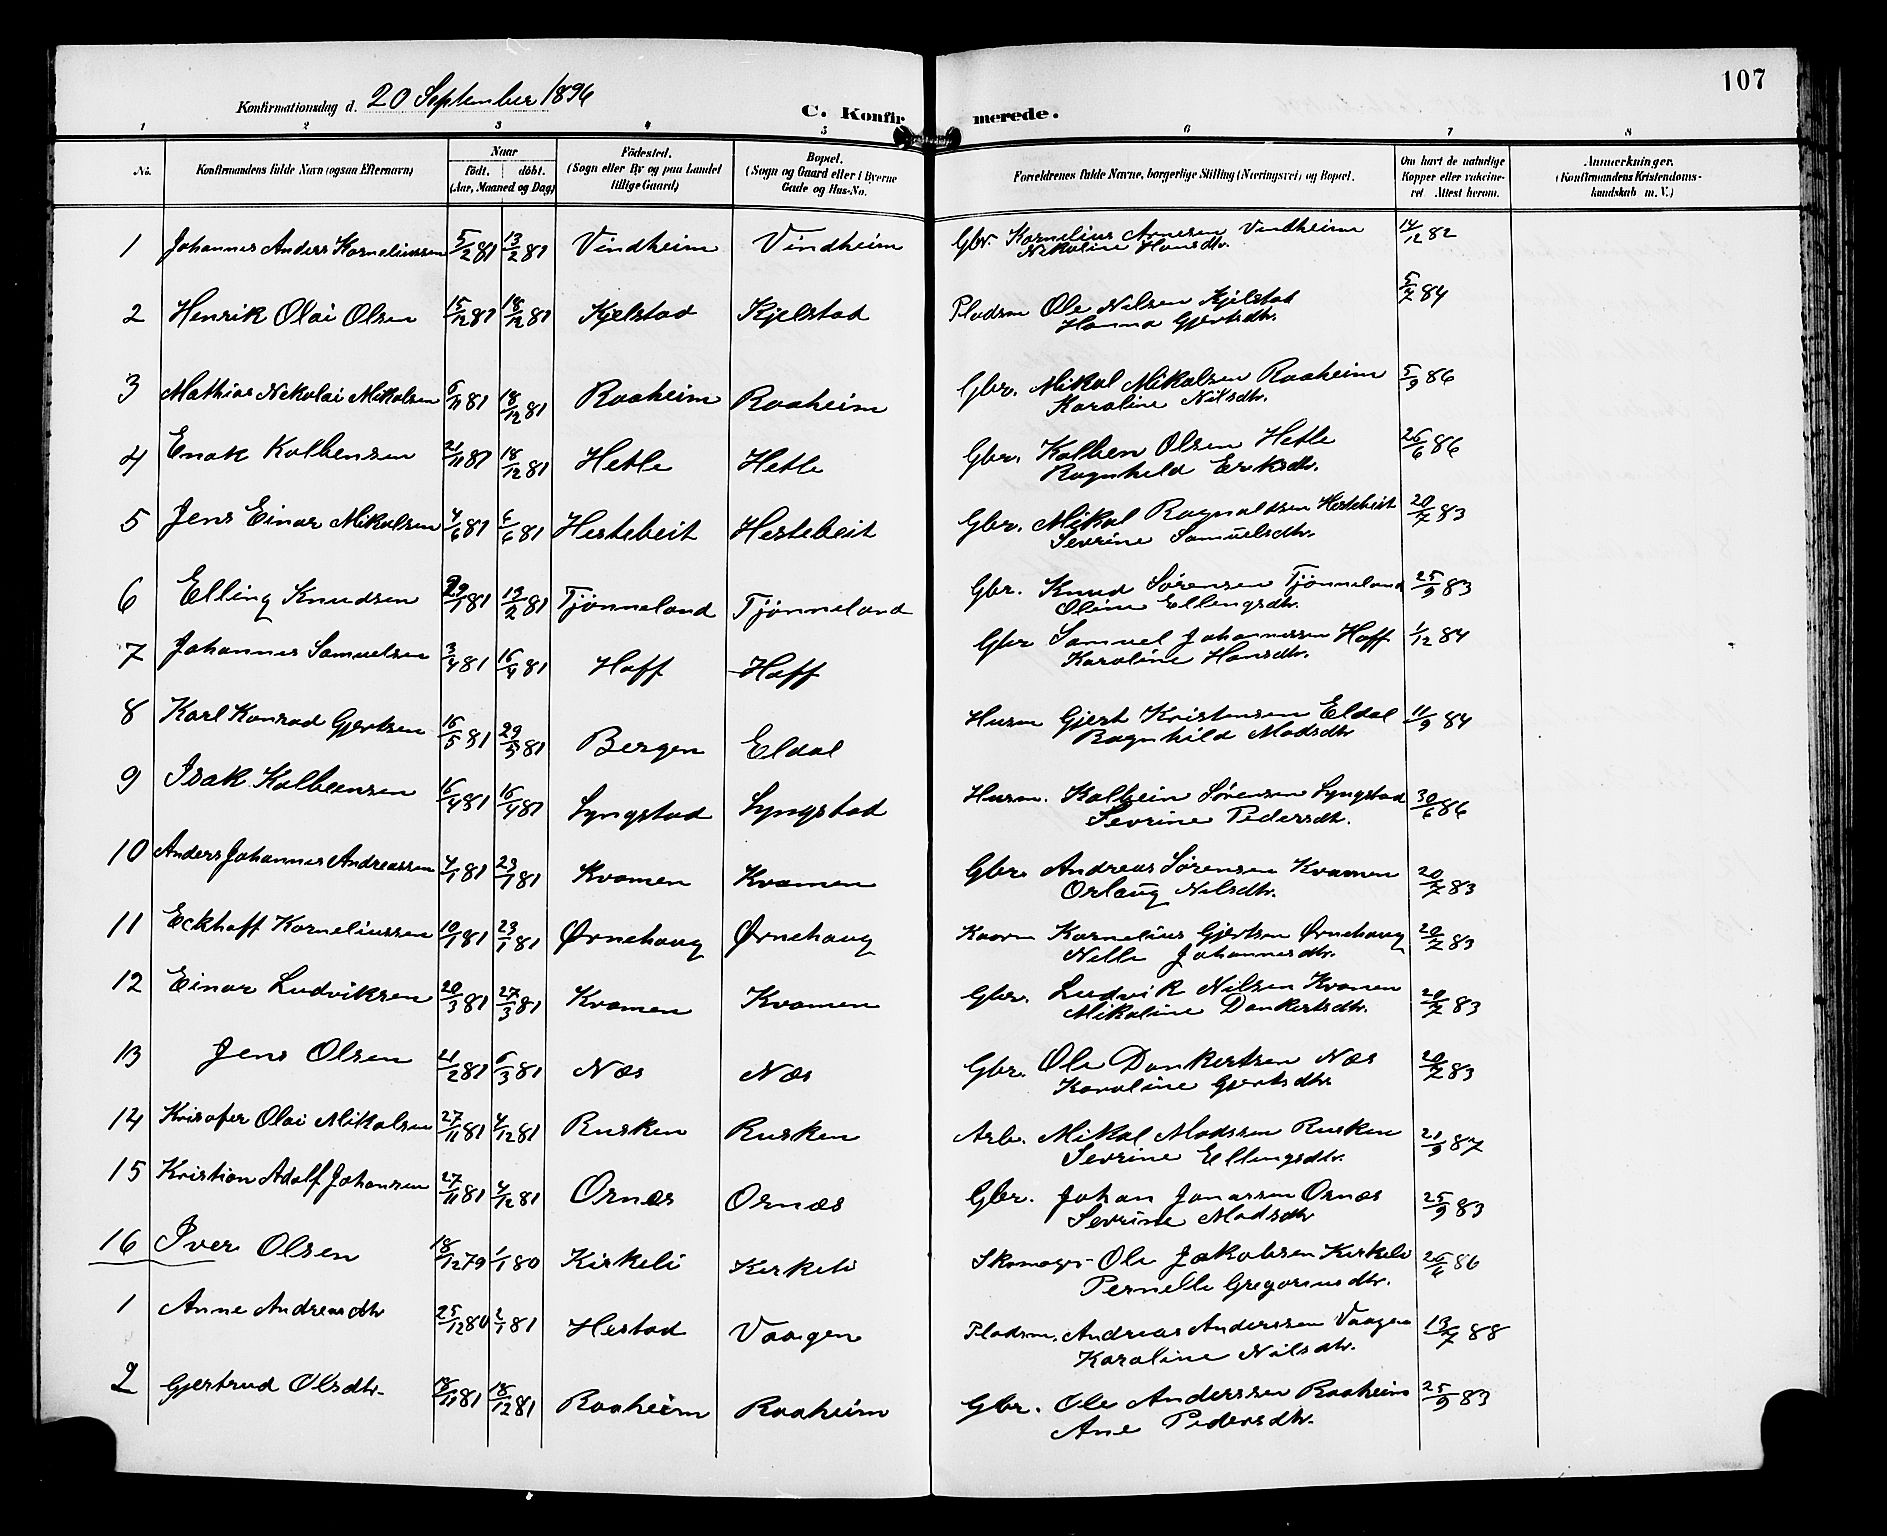 107
Konfirmationsdag d. 20 September 1896
C. Konfirmerede.
1 2 3 4 5 6 7 8
No. Konfirmandens fulde Navn (ogsaa Efternavn) Naar født. døbt. (Aar, Maaned og Dag) Fødested. (Sogn eller By og paa Landet tillige Gaard) Bopæl. (Sogn og Gaard eller i Byerne Gade og Hus-No. Forældrenes fulde Navne, borgerlige Stilling (Næringsvei) og Bopæl. Om havt de naturlige Kopper eller vakcineret Attest herom. Anmerkninger. (Konfirmandens Kristendomskundskab m. V.)
1 Johannes Anders Korneliussen 5/2 81 13/2 81 Vindheim Vindheim Gbr. Kornelius Arnesen Vindheim 14/12 82
Nikoline Hansdtr.
2 Henrik Olai Olsen 15/12 81 18/12 81 Kjelstad Kjelstad Pladsm Ole Nilsen Kjelstad 5/7 84
Hanna Gjertsdtr.
3 Mathias Nikolai Mikalsen 6/11 81 18/12 81 Raaheim Raaheim Gbr. Mikal Mikalsen Raaheim 5/9 86
Karoline Nilsdtr.
4 Enok Kolbensen 21/11 81 18/12 81 Hetle Hetle Gbr. Kolben Olsen Hetle 26/6 86
Ragnhild Eriksdtr.
5 Jens Einar Mikalsen 4/6 81 6/6 81 Hestebeit Hestebeit Gbr. Mikal Ragnaldsen Hestebeit 20/7 83
Sevrine Samuelsdtr.
6 Elling Knudsen 29/1 81 13/2 81 Tjønneland Tjønneland Gbr. Knud Sørensen Tjønneland 25/9 83
Oline Ellingsdtr.
7 Johannes Samuelsen 3/4 81 16/4 81 Hoff Hoff Gbr Samuel Johannessen Hoff 1/12 84
Karoline Hansdtr.
8 Karl Konrad Gjertsen 16/5 81 29/5 81 Bergen Eldal Husm Gjert Kristensen Eldal 11/9 84
Ragnhild Madsdtr
9 Isak Kolbeensen 16/4 81 16/4 81 Lyngstad Lyngstad Husm. Kolbein Sørensen Lyngstad 30/6 86
Sevrine Pedersdtr.
10 Anders Johannes Andreassen 4/1 81 23/1 81 Kvamen Kvamen Gbr. Andreas Sørensen Kvamen 20/7 83
Orlaug Nilsdtr.
11 Eckhoff Korneliussen 10/1 81 23/1 81 Ørnehaug Ørnehaug Kaarm Kornelius Gjertsen Ørnehaug 20/7 83
Nille Johannesdtr.
12 Einar Ludviksen 20/3 81 27/3 81 Kvamen Kvamen Gbr. Ludvik Nilsen Kvamen 20/7 83
Mikaline Dankertsdtr.
13 Jens Olsen 21/2 81 6/3 81 Næs Næs Gbr. Ole Dankertsen Næs 20/7 83
Karoline Gjertsdtr.
14 Krisofer Olai Mikalsen 27/11 81 4/12 81 Rusken Rusken Arb. Mikal Madssen Rusken 21/9 87
Sevrine Ellingsdtr.
15 Kristian Adolf Johansen 27/11 81 4/12 81 Ornæs Ornæs Gbr. Johan Jonassen Ornæs 25/9 83
Sevrine Madsdtr
16 Iver Olsen 18/12 79 1/1 80 Kirkeli Kirkeli Skomager Ole Jakobsen Kirkeli 26/6 86
Pernelle Gregoriusdtr.
1 Anne Andreasdtr 25/12 80 2/1 81 Hestad Vaagen Pladsm. Andreas Anderssen Vaagen 13/7 88
Karoline Nilsdtr.
2 Gjertrud Olsdtr. 18/11 81 18/12 81 Raaheim Raaheim Gbr. Ole Anderssen Raaheim 25/9 83
Ane Pedersdtr.